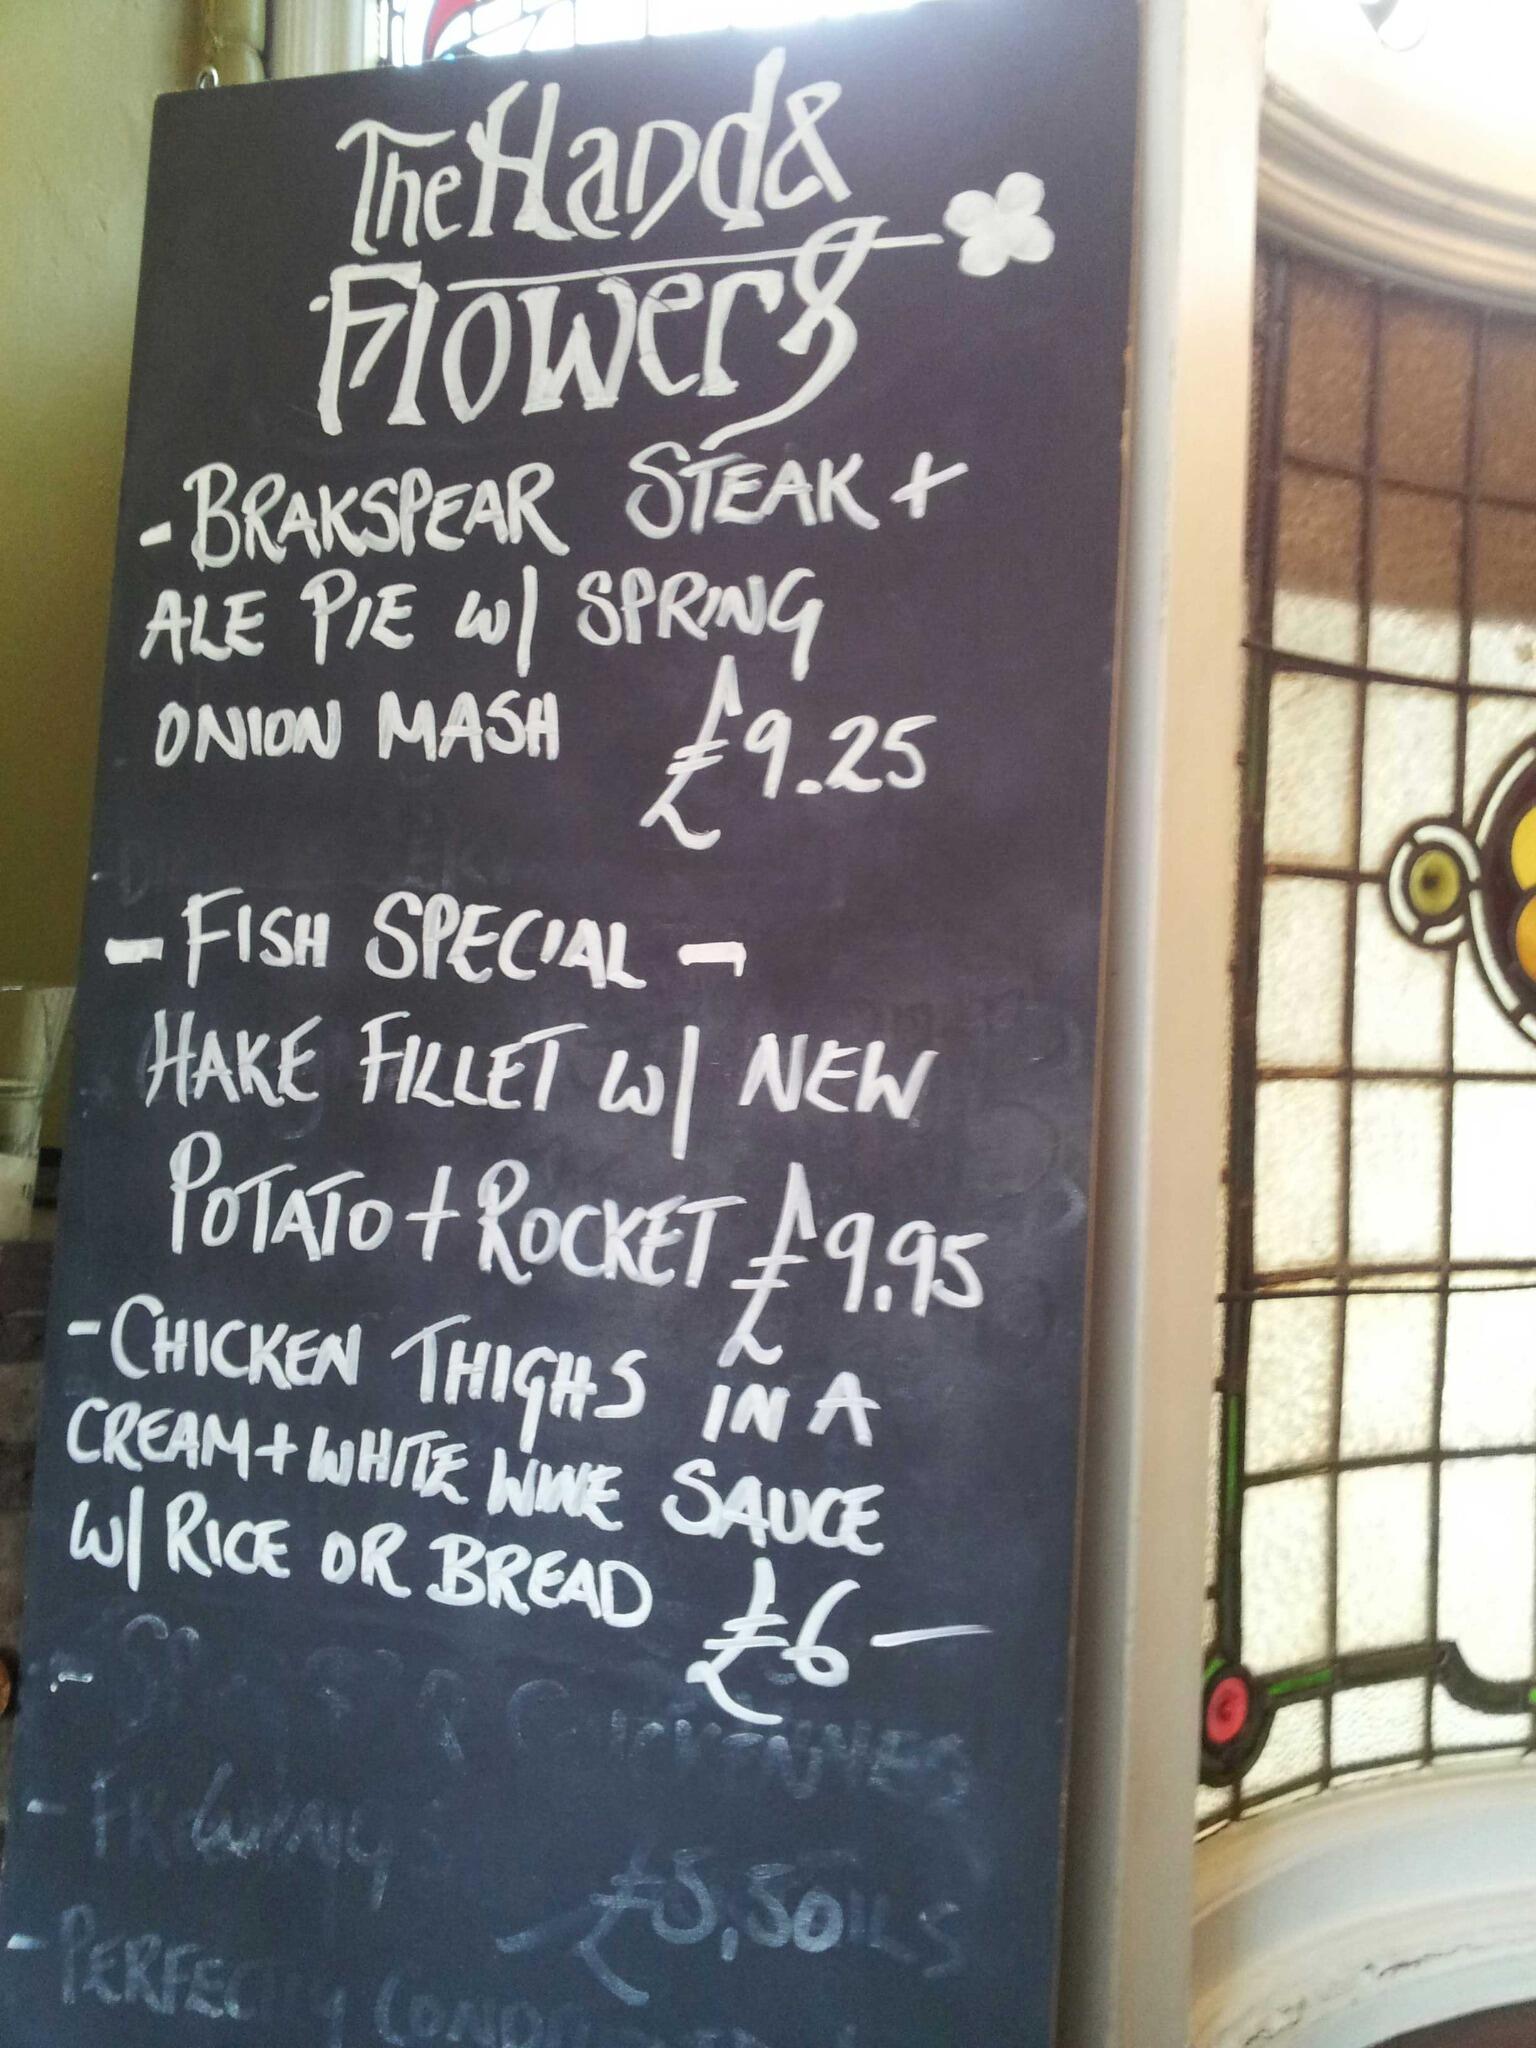 The Hand &
Flowers
- BRAKSPEAR STEAK +
ALE PIE W/ SPRING
ONION MASH £9.25
- FISH SPECIAL -
HAKE FILLET W/ NEW
POTATO + ROCKET £9.95
- CHICKEN THIGHS IN A
CREAM + WHITE WINE SAUCE
W/ RICE OR BREAD £6 —
£5,50
- PERFECTLY